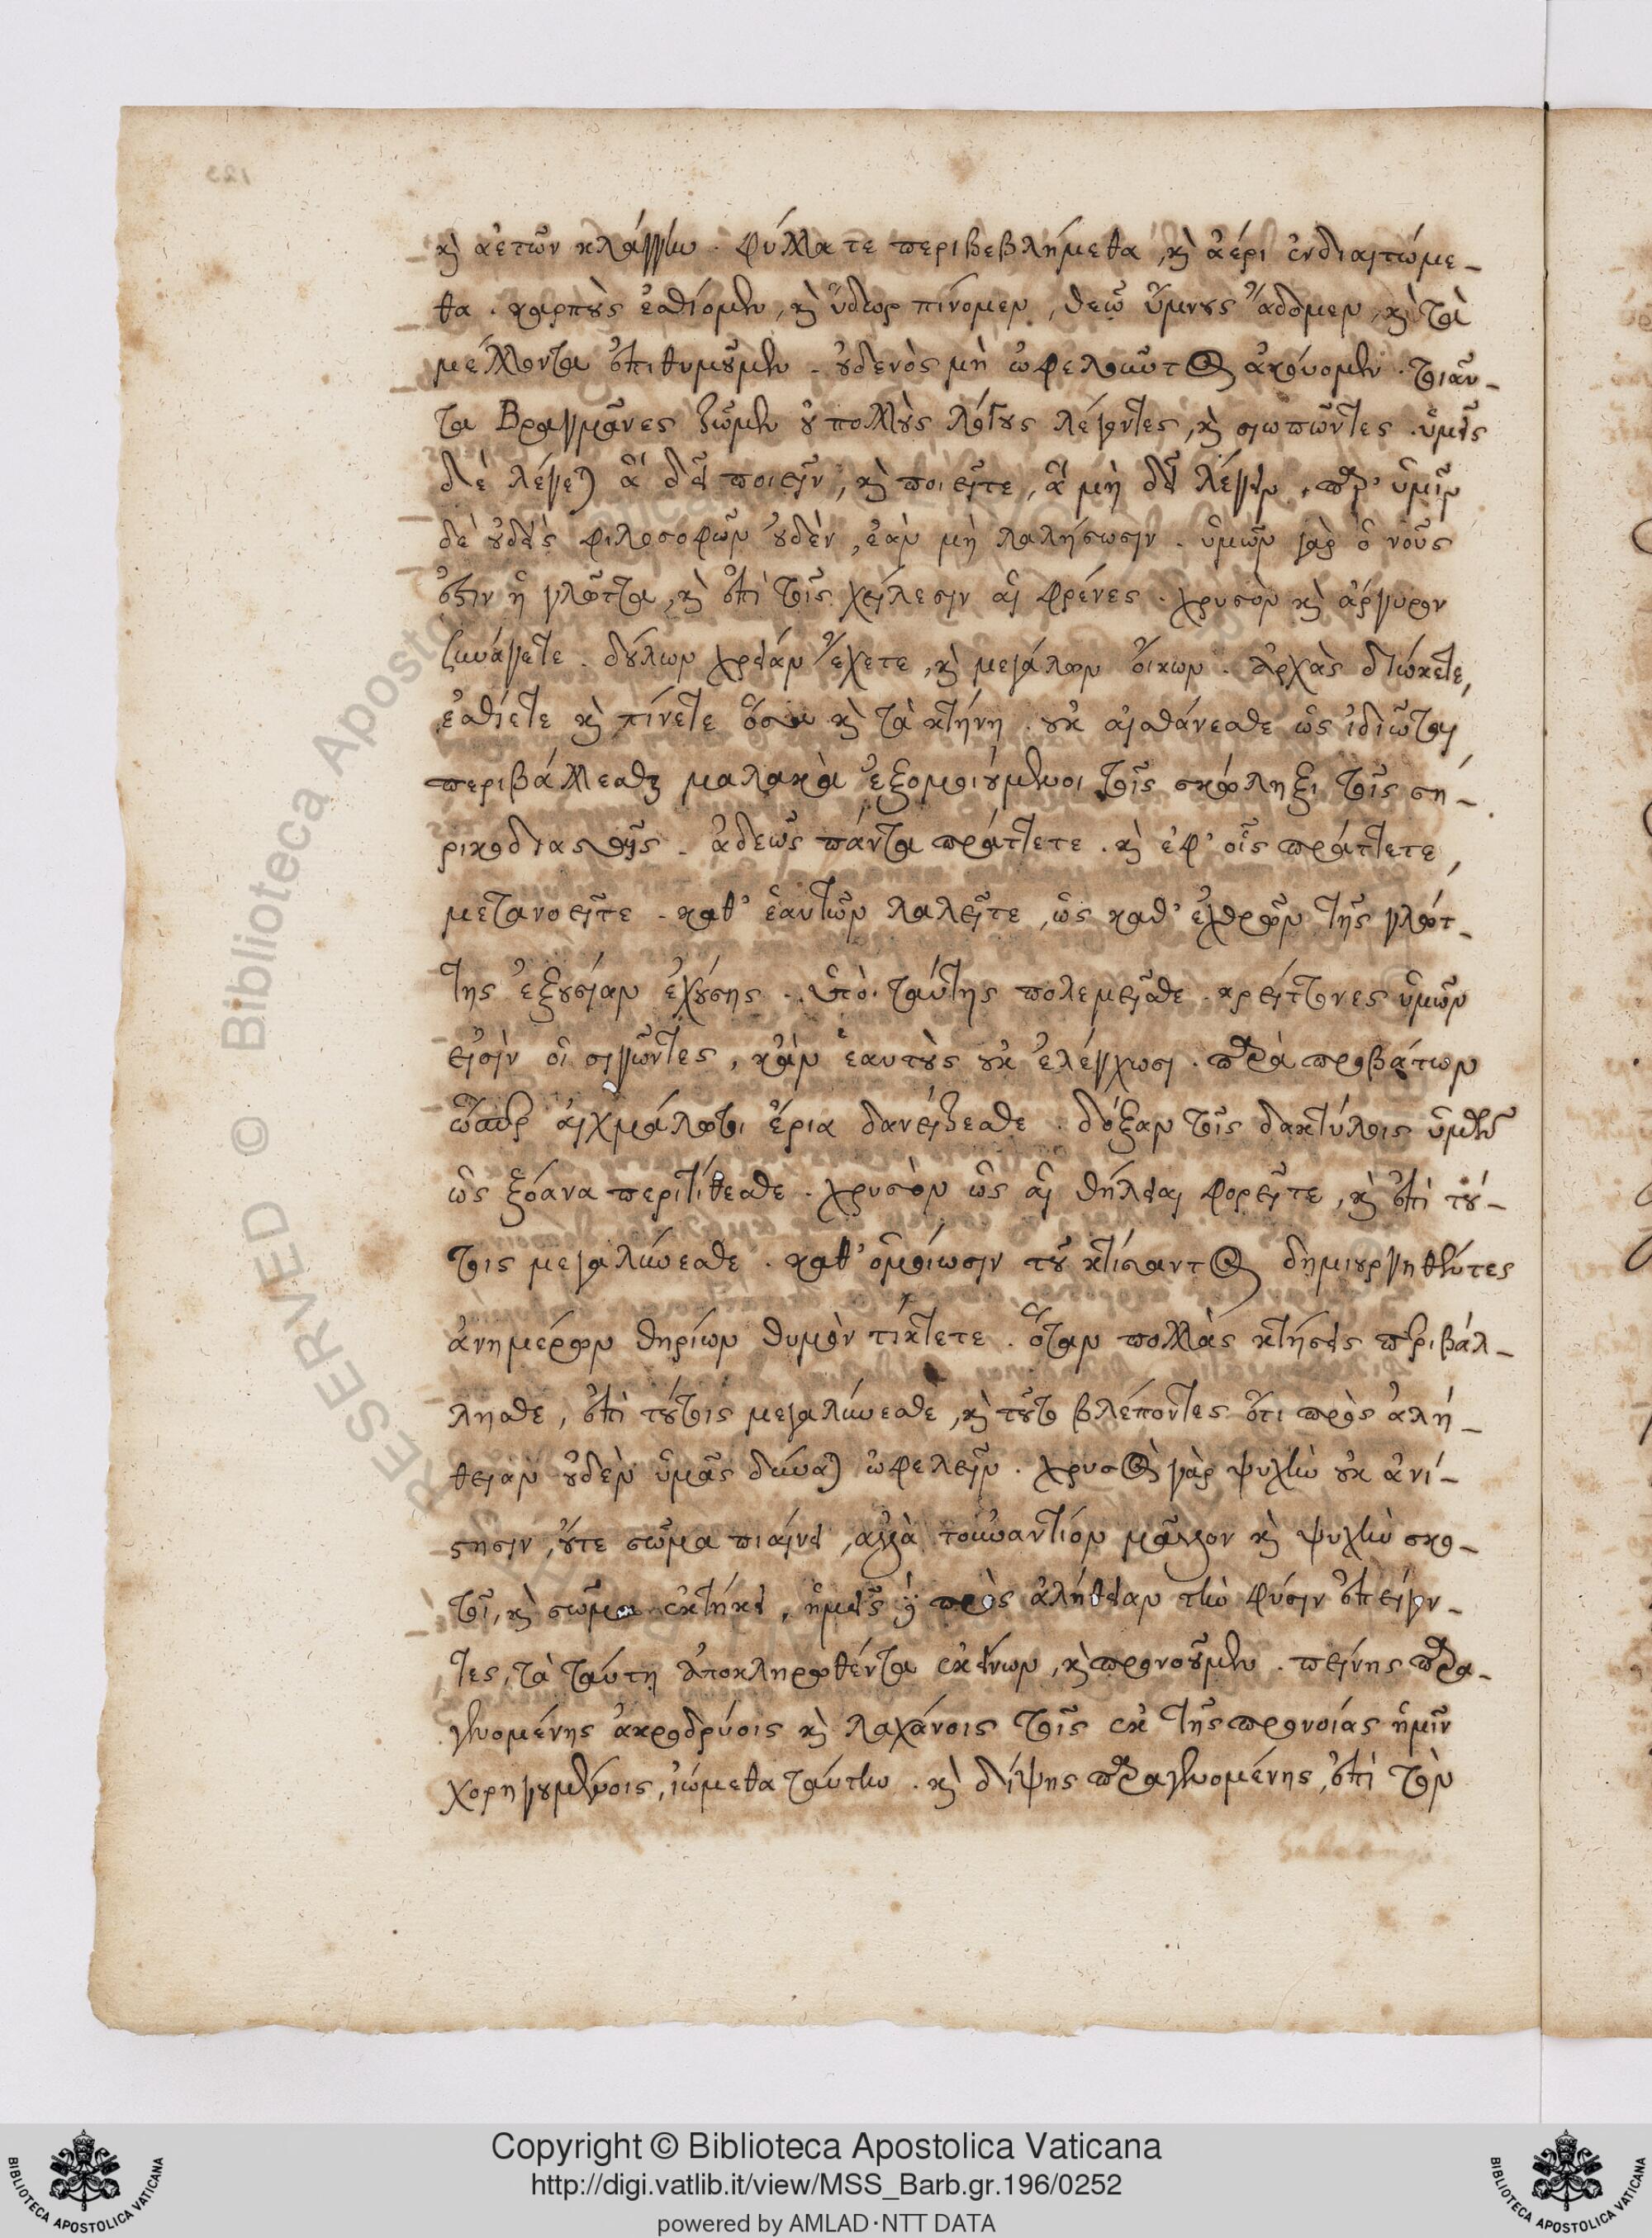 καὶ ἀετῶν κλαγγήν. φύλλα τε περιβεβλήμεθα, καὶ ἀέρι ἐνδιαιτώμε-
θα. καρποὺς ἐσθίομεν, καὶ ὕδωρ πίνομεν, θεῷ ὕμνους ᾄδομεν, καὶ τὰ
μέλλοντα ἐπιθυμοῦμεν. οὐδενὸς μὴ ὠφελοῦντος ἀκούομεν. τοιαῦ-
τα Βραγμᾶνες ζῶμεν οὐ πολλοὺς λόγους λέγοντες, καὶ σιωπῶντες. ὑμεῖς
δὲ λέγετε ἃ δεῖ ποιεῖν, καὶ ποιεῖτε, ἃ μὴ δεῖ λέγειν. παρ' ὑμῖν
δὲ οὐδεὶς φιλοσοφῶν οὐδὲν, ἐὰν μὴ λαλήσωσιν. ὑμῶν γὰρ ὁ νοῦς
ἐστιν ἡ γλῶττα, καὶ ἐπὶ τοῖς χείλεσιν αἱ φρένες. χρυσὸν καὶ ἄργυρον
συνάγετε. δούλων χρείαν ἔχετε, καὶ μεγάλων οἴκων. ἀρχὰς διώκετε,
ἐσθίετε καὶ πίνετε ὅσα καὶ τὰ κτήνη. οὐκ αἰσθάνεσθε ὡς ἰδιῶται
περιβάλλεσθε μαλακὰ ἐξομοιούμενοι τοῖς σκώληξι τοῖς ση-
ρικοδιασταῖς. ἀδεῶς πάντα πράττετε. καὶ ἐφ' οἷς πράττετε,
μετανοεῖτε. καθ' ἑαυτῶν λαλεῖτε, ὡς καθ' ἐχθρῶν τῆς γλώτ-
της ἐξουσίαν ἐχούσης. ὑπὸ ταύτης πολεμεῖσθε. κρείττονες ὑμῶν
εἰσὶν οἱ σιγῶντες, κἂν ἑαυτοὺς οὐκ ἐλέγχωσι. παρὰ προβάτων
ὥσπερ αἰχμάλωτοι ἔρια δανείζεσθε. δόξαν τοῖς δακτύλοις ὑμῶν
ὡς ξόανα περιτίθεσθε. χρυσὸν ὡς αἱ θήλειαι φορεῖτε, καὶ ἐπὶ τού-
τοις μεγαλύνεσθε. καθ' ὁμοίωσιν τοῦ κτίσαντος δημιουργηθέντες
ἀνημέρων θηρίων θυμὸν τίκτετε. ὅταν πολλὰς κτήσεις περιβάλ-
λησθε, ἐπὶ τούτοις μεγαλύνεσθε, καὶ τοῦτο βλέποντες ὅτι πρὸς ἀλή-
θειαν οὐδὲν ὑμᾶς δύναται ὠφελεῖν. χρυσὸς γὰρ ψυχὴν οὐκ ἀνί-
στησιν, οὔτε σῶμα πιαίνει, ἀλλὰ τοὐναντίον μᾶλλον καὶ ψυχὴν σκο-
τοῖ, καὶ σῶμα ἐκτήκει, ἡμεῖς δὲ πρὸς ἀλήθειαν τὴν φύσιν ἐπείγον-
τες, τὰ ταύτῃ ἀποκληρωθέντα ἐκείνων, καὶ προνοοῦμεν. πείνης παρα-
γενομένης ἀκροδρύοις καὶ λαχάνοις τοῖς ἐκ τῆς προνοίας ἡμῖν
χορηγουμένοις, ἰώμεθα ταύτην. καὶ δίψης παραγενομένης, ἐπὶ τὸν
Copyright © Biblioteca Apostolica Vaticana
http://digi.vatlib.it/view/MSS_Barb.gr.196/0252
powered by AMLAD·NTT DATA